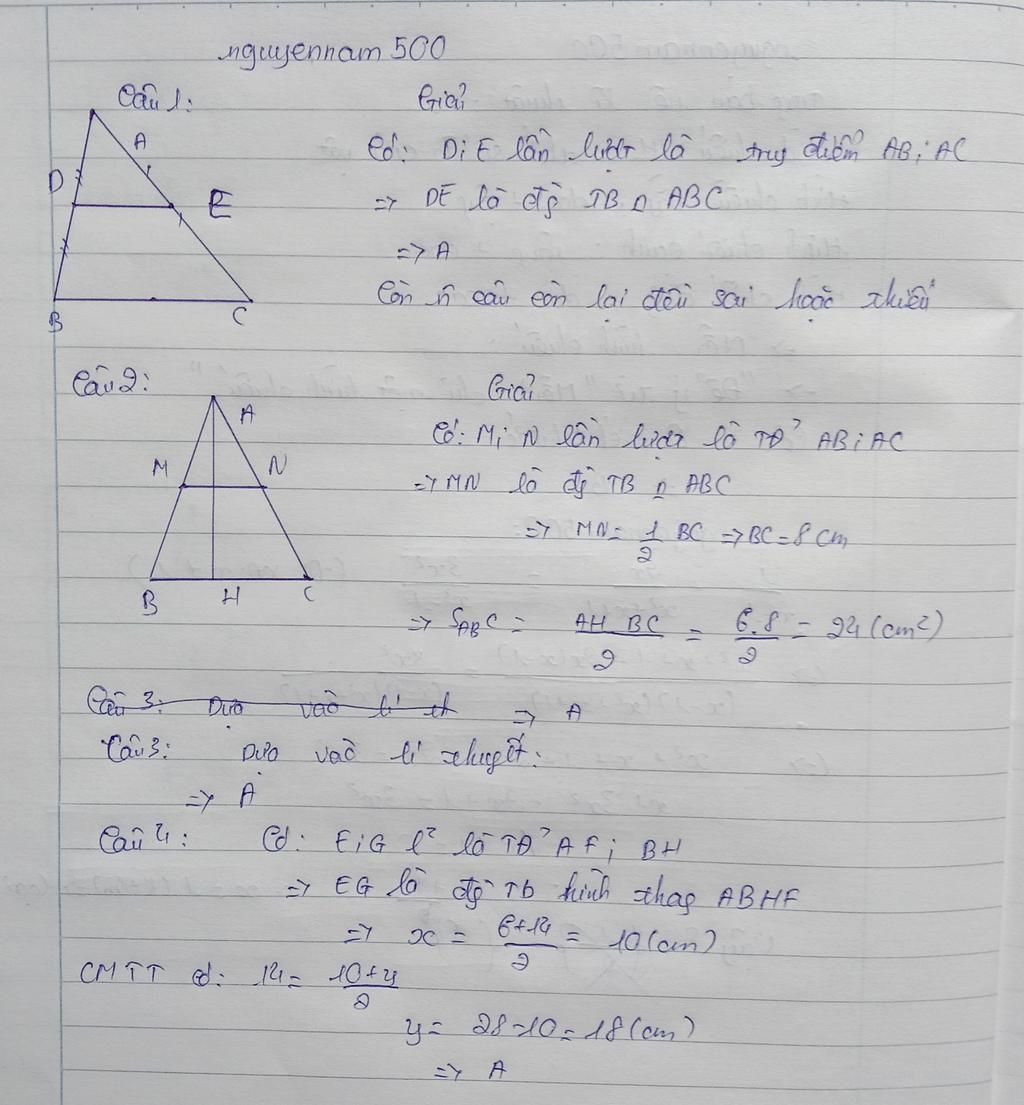 nguyennam 500
Câu 1: Giải
A
D
E
B C
Có: D; E lần lượt là trug điểm AB; AC
=> DE là đg TB Δ ABC
=> A
Còn n̄ câu còn lại đều sai hoặc thiếu
Câu 2: Giải
A
M N
B H C
Có: M; N lần lượt là TĐ² AB; AC
=> MN là đg TB Δ ABC
=> MN = 1/2 BC => BC = 8 cm
=> S_ABC = AH BC / 2 = 6.8 / 2 = 24 (cm²)
Câu 3: Dựa vào lí th => A
Câu 3: Dựa vào lí thuyết:
=> A
Câu 4: Có: E; G l² là TĐ² AF; BH
=> EG là đg Tb hình thag ABHF
=> x = 6+14 / 2 = 10 (cm)
CMTT có: 14 = 10+y / 2
y = 28-10 = 18 (cm)
=> A